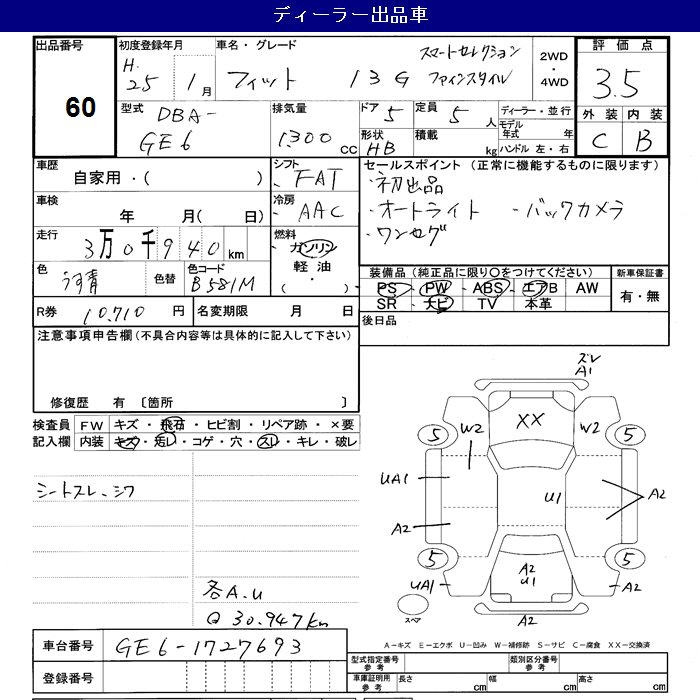 ディーラー出品車
出品番号 初度登録年月 車名・グレード 評価点
H.25 1月 フィット 13G スマートセレクション ファインスタイル 2WD・4WD 3.5
60
型式 排気量 ドア 5 定員 5人 ディーラー・並行 外装 内装
DBA- モデル年式 年 C B
GE6 1300cc 形状 HB 積載 kg ハンドル 左・右
車歴 シフト セールスポイント (正常に機能するものに限ります)
自家用・( ) ・FAT ・初出品
車検 冷房 ・オートライト ・バックカメラ
年 月( 日) ・AAC ・ワンセグ
走行 燃料
3万0千940km ガソリン
色 うす青 色替 色コード B581M 軽油・( ) 装備品 (純正品に限り〇をつけてください) 新車保証書
PS PW ABS エアB AW 有・無
R券 10,710円 名変期限 月 日 SR ナビ TV 本革
注意事項申告欄 (不具合内容等は具体的に記入して下さい) 後日品
修復歴 有 〔箇所 〕
検査員 FW キズ・飛石・ヒビ割・リペア跡・×要
記入欄 内装 キズ・汚レ・コゲ・穴・スレ・キレ・破レ
シートスレ、シワ
各A.U
Q 30.947km
ズレ
A1
XX
W2 W2
5 5
UA1 U1 A2
A2
5 5
A2
U1
UA1 A2
スペア A2
A－キズ E－エクボ U－凹み W－補修跡 S－サビ C－腐食 XX－交換済
車台番号 GE6-1727693
登録番号
型式指定番号 参考 類別区分番号 参考
車庫証明用 参考 長さ cm 幅 cm 高さ cm